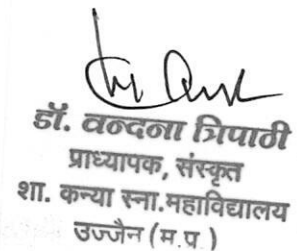 डॉ. वन्दना त्रिपाठी
प्राध्यापक, संस्कृत
शा. कन्या स्ना.महाविद्यालय
उज्जैन (म.प.)